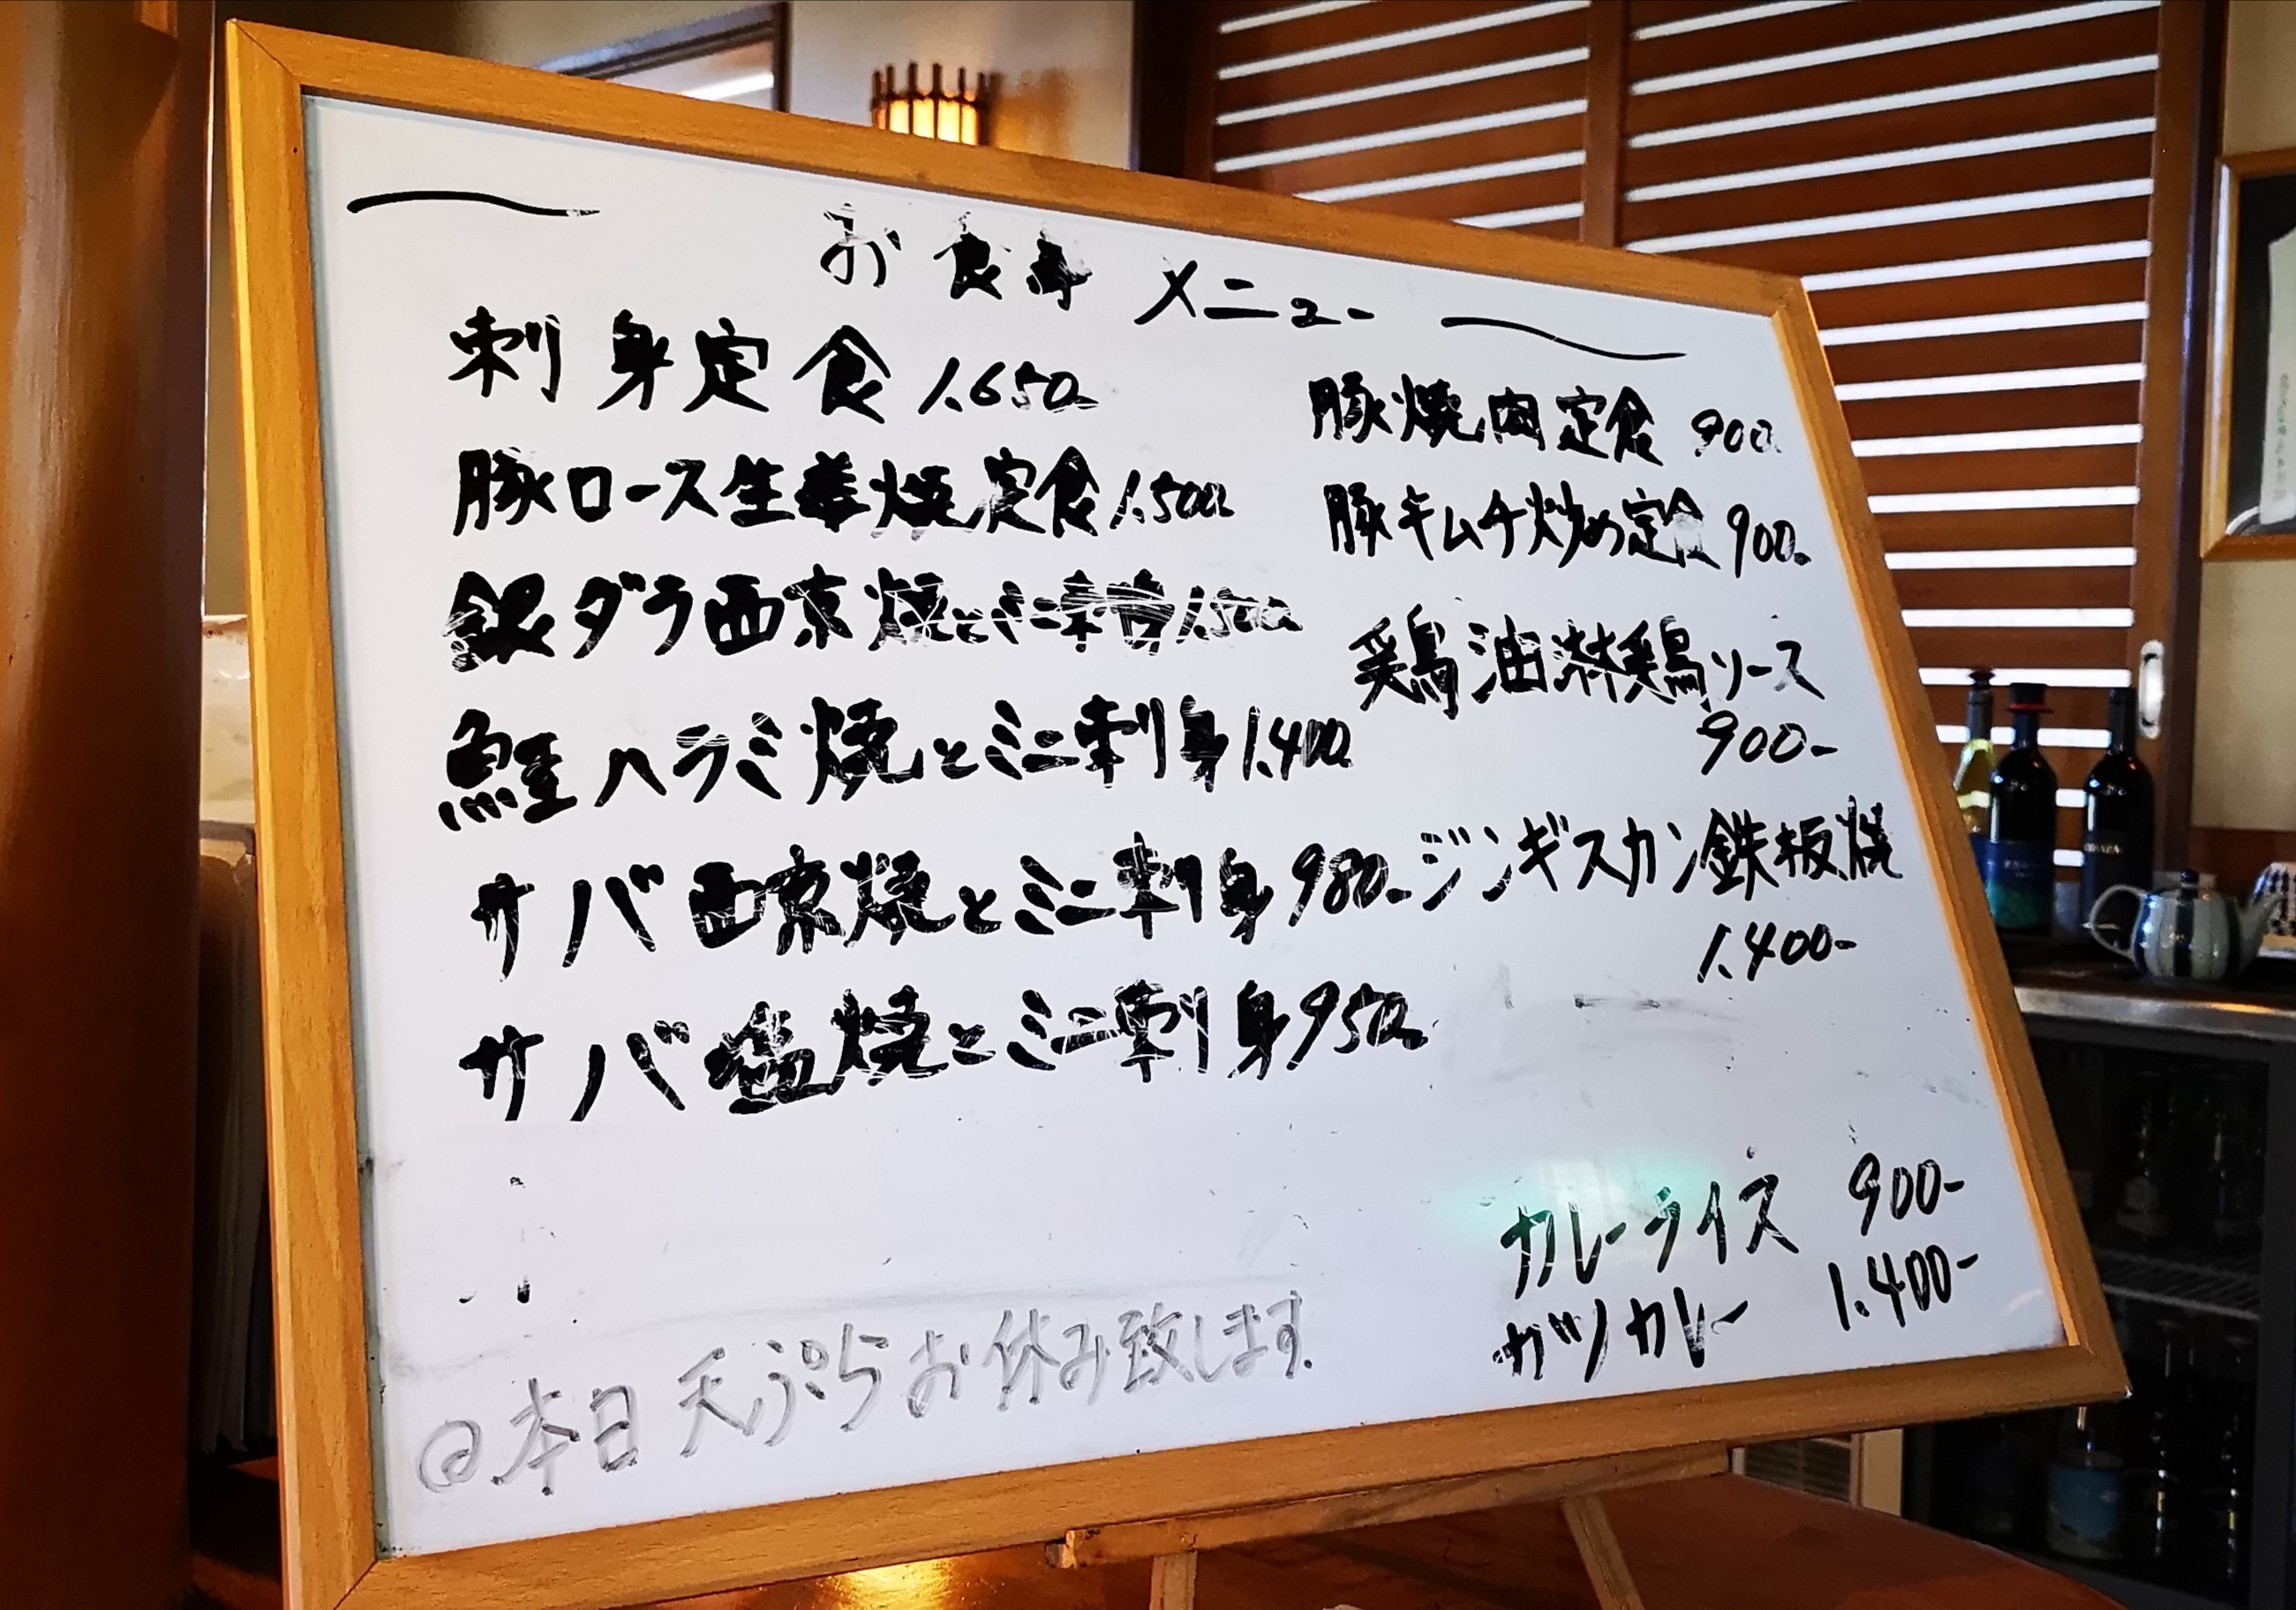 お食事メニュー
刺身定食 1.650-
豚ロース生姜焼定食 1.500-
銀ダラ西京焼とミニ刺身 1.500-
鮭ハラミ焼とミニ刺身 1.400-
サバ西京焼とミニ刺身 980-
サバ塩焼とミニ刺身 950-
豚焼肉定食 900-
豚キムチ炒め定食 900-
鶏油淋鶏ソース
900-
ジンギスカン鉄板焼
1.400-
カレーライス 900-
カツカレー 1.400-
@本日天ぷらお休み致します.